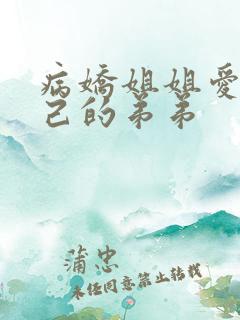 病嬌姐姐愛
己的弟弟
蒲忠
未任同意禁止转载